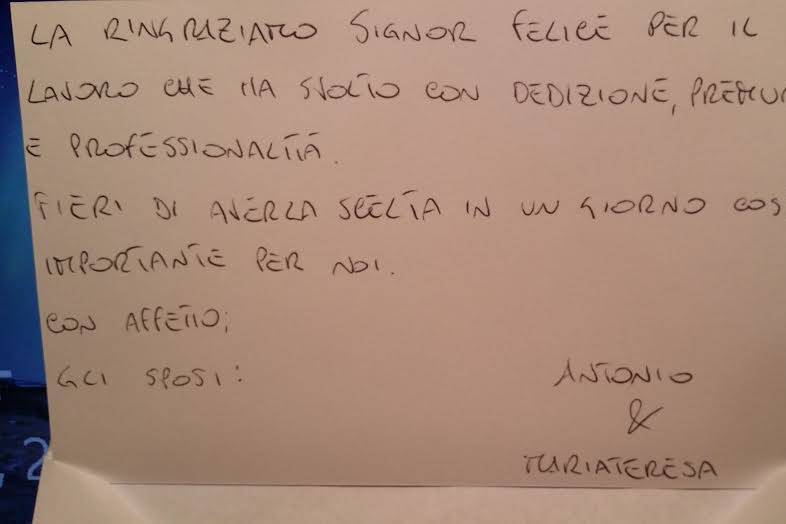 LA RINGRAZIAMO SIGNOR FELICE PER IL
LAVORO CHE HA SVOLTO CON DEDIZIONE, PREMUR
E PROFESSIONALITÀ.
FIERI DI AVERLA SCELTA IN UN GIORNO COS
IMPORTANTE PER NOI.
CON AFFETTO;
GLI SPOSI:
ANTONIO
&
MARIATERESA
, 2